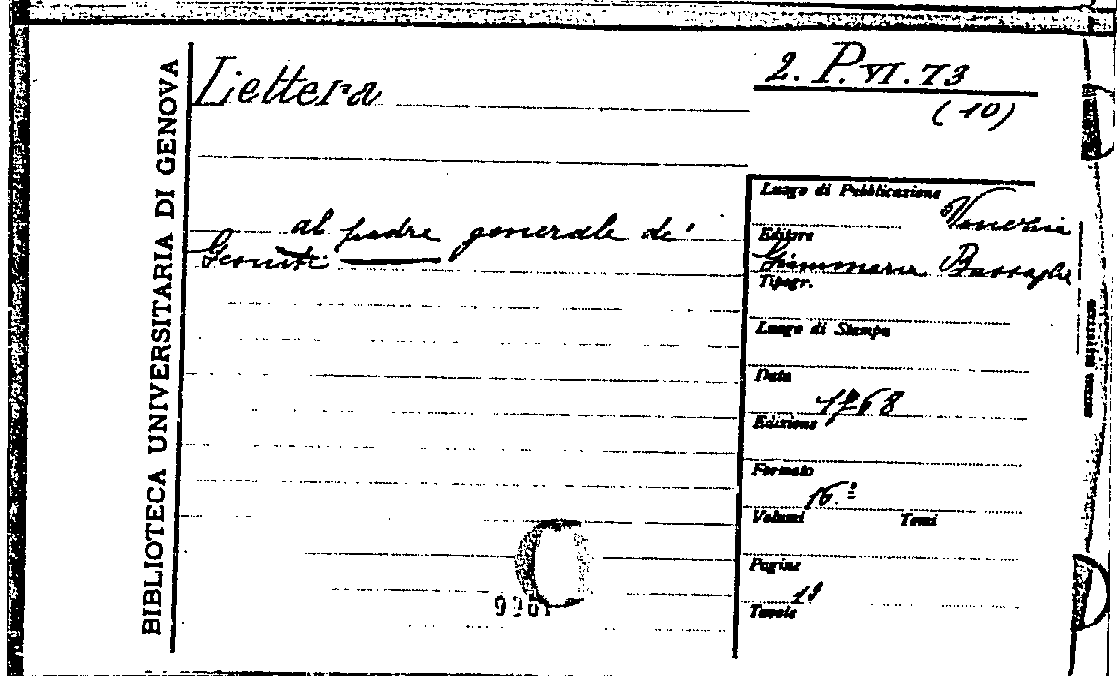 BIBLIOTECA UNIVERSITARIA DI GENOVA
Lettera
2. P. VI. 73
(10)
al padre generale de'
Gesuiti
Luogo di Pubblicazione Venezia
Editore
Giammaria Bassaglia
Tipogr.
Luogo di Stampa
Data
1768
Edizione
Formato
16.º
Volumi Tomi
Pagine
Tavole